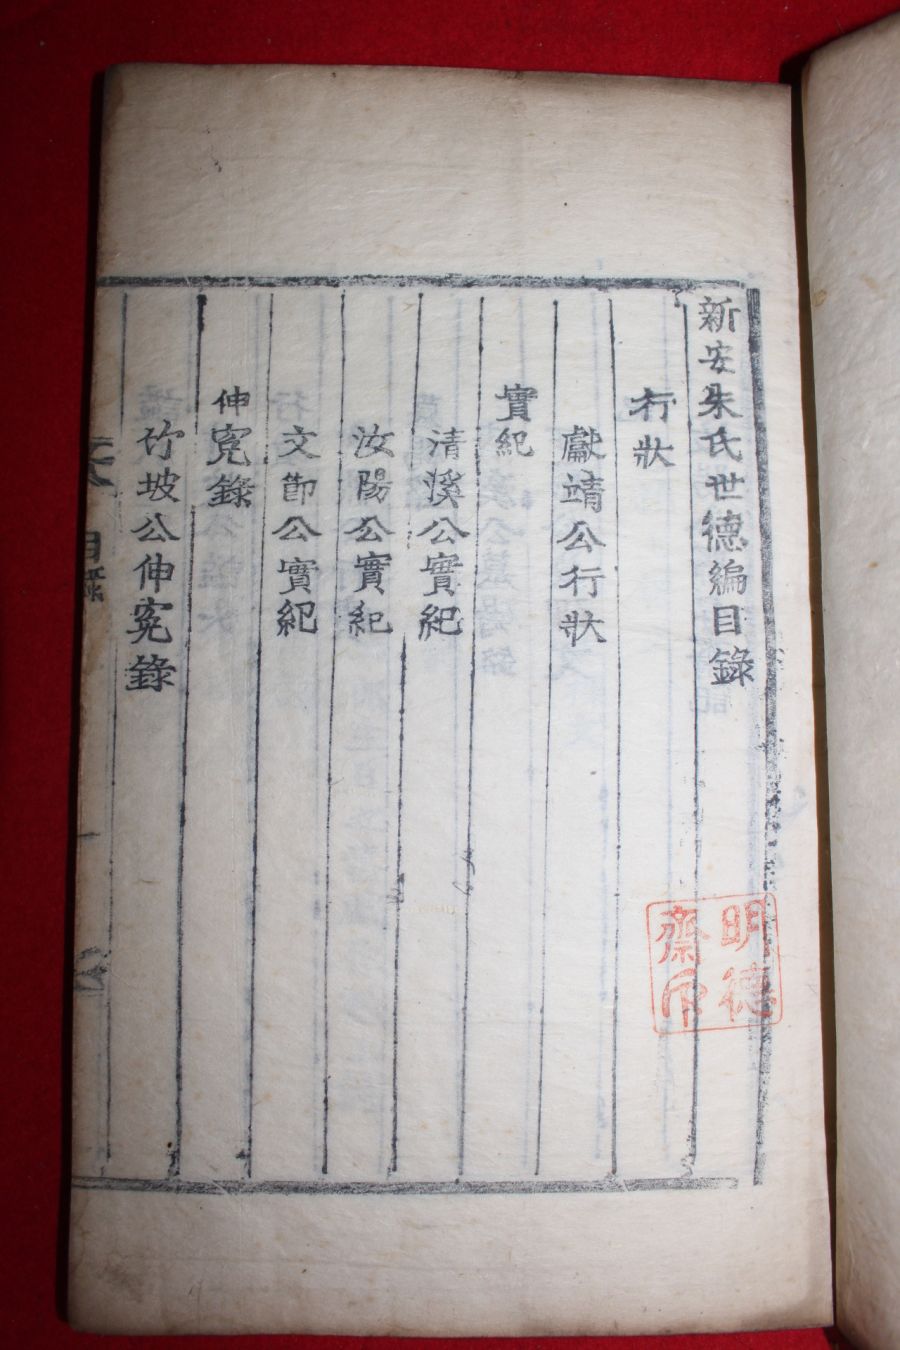 新安朱氏世德編目錄
行狀
獻靖公行狀
實紀
清溪公實紀
汝陽公實紀
文節公實紀
伸冤錄
竹坡公伸冤錄
目錄
明德
齋印